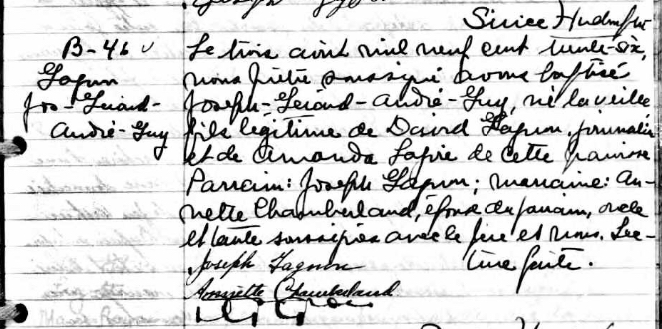 B-46
Gagnon
Jos-Gérard-
André-Guy
Le trois août mil neuf cent trente-six,
nous prêtre soussigné avons baptisé
Joseph-Gérard-André-Guy, né la veille
fils légitime de David Gagnon, journalier
et de Amanda de cette paroisse
Parrain: Joseph Gagnon; marraine: An-
nette Chamberland, épouse du parrain, oncle
et tante soussignés avec le père et nous. Lec-
ture faite.
Joseph Gagnon
Annette Chamberland